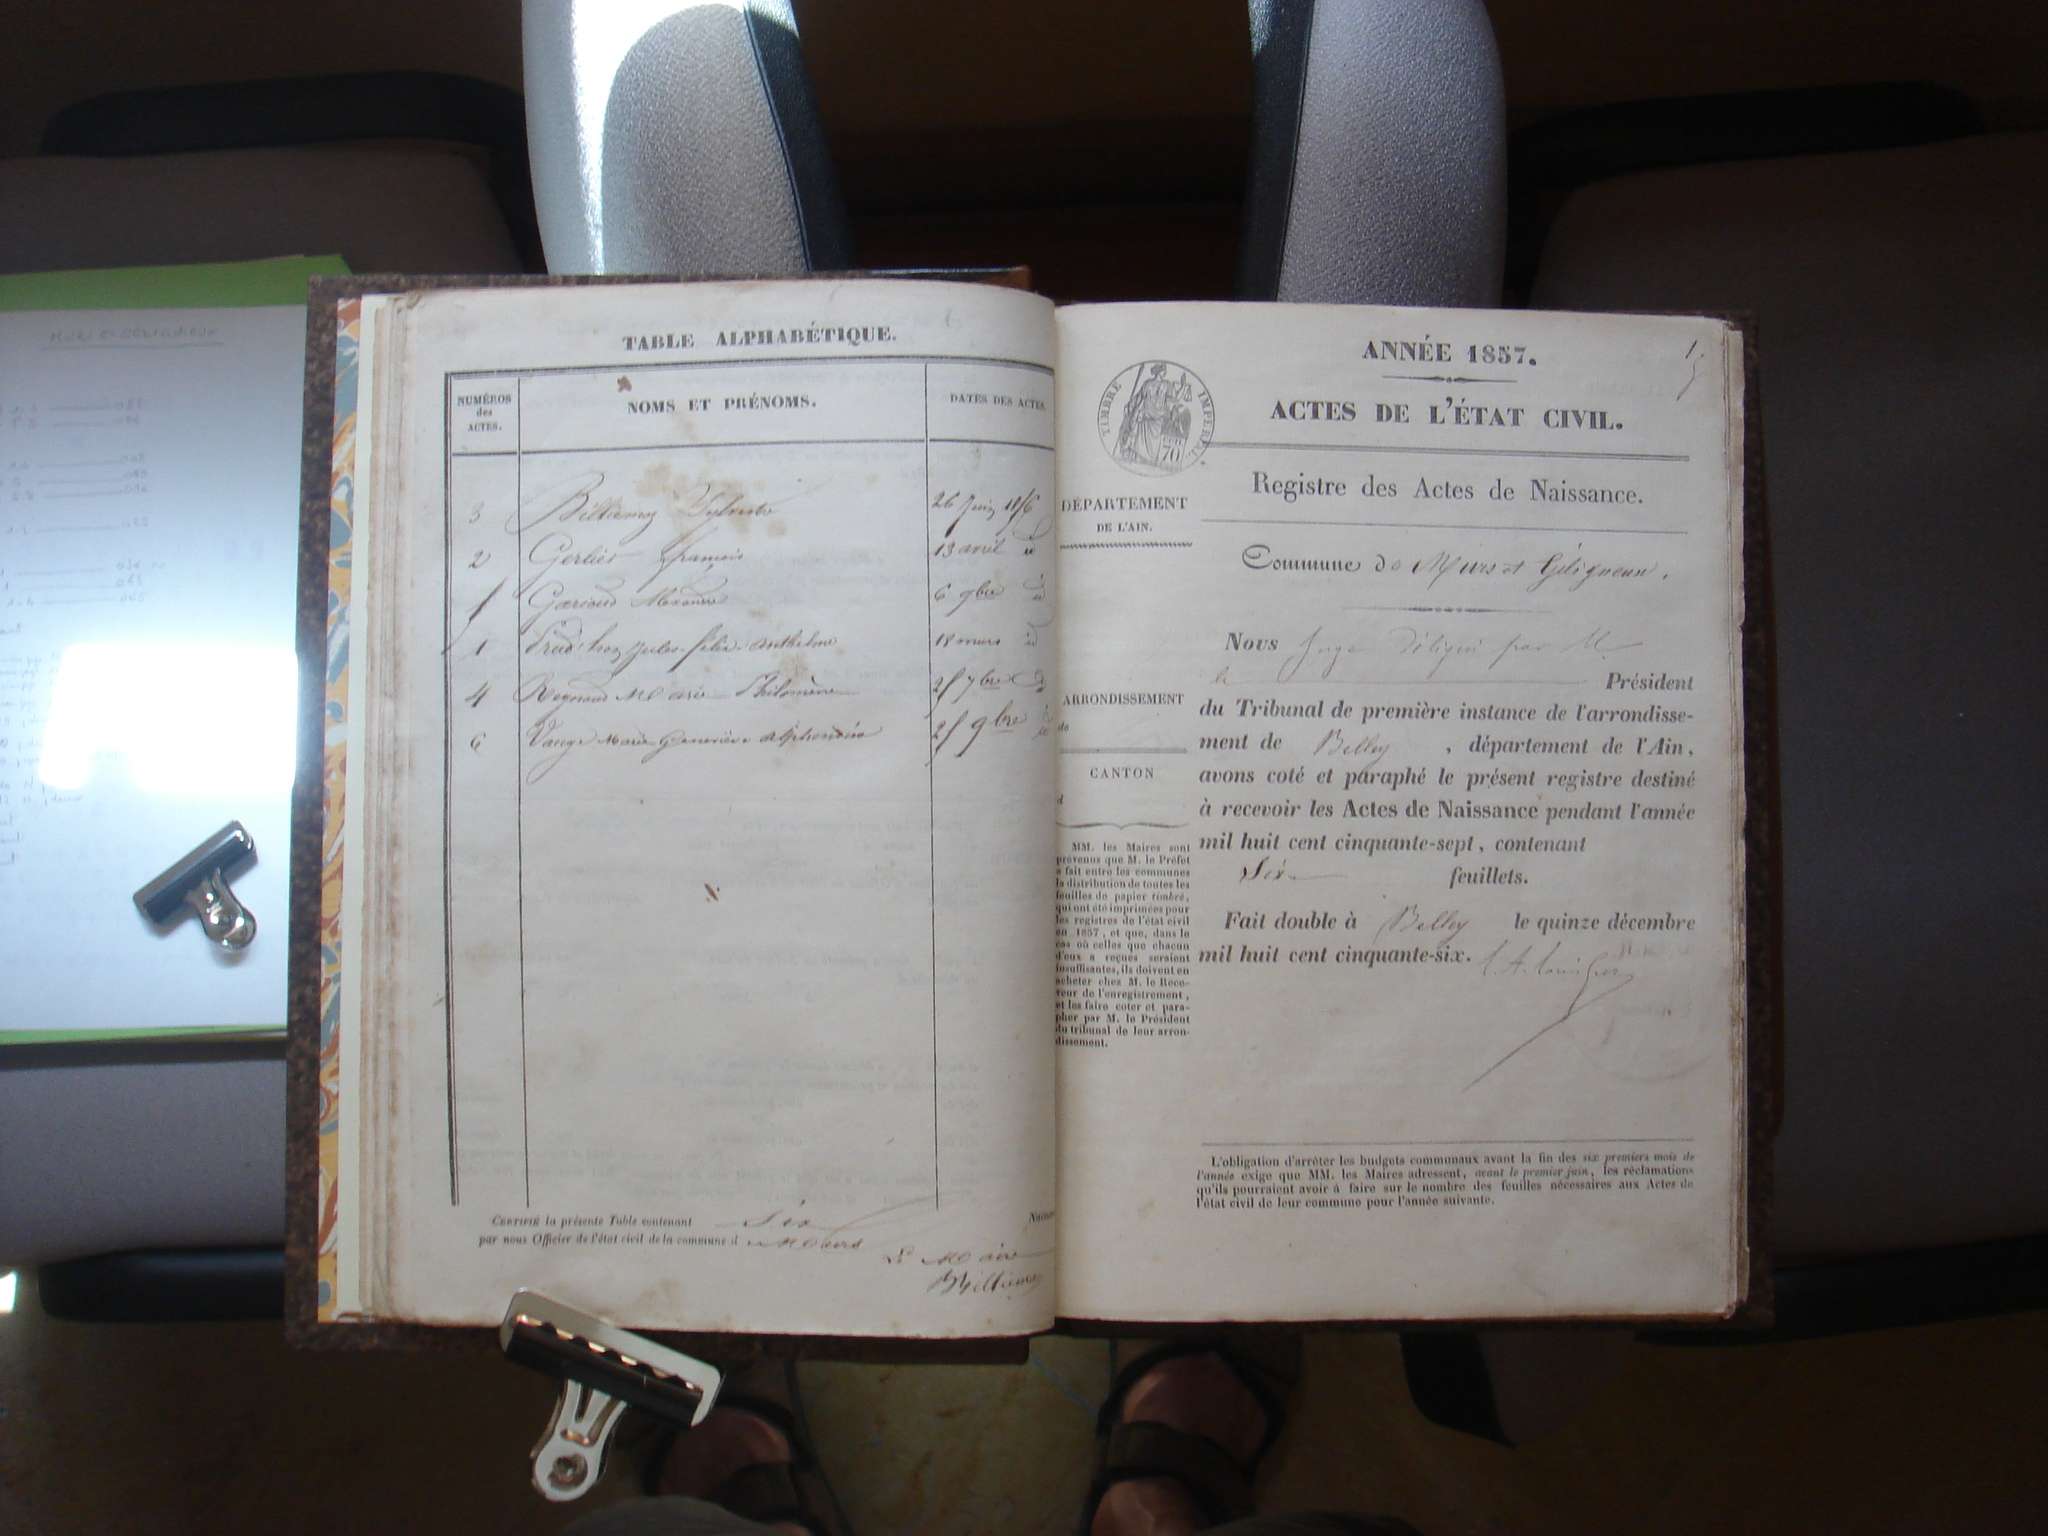 TABLE ALPHABÉTIQUE.
NUMÉROS
des
ACTES.
NOMS ET PRÉNOMS.
DATES DES ACTES.
3 Billiemaz Sylvestre 26 Juin 1856
2 Gerlier françois 13 avril id
5 6 9bre id
1 Prud'hon Jules félix anthelme 18 mars id
4 Reynaud Marie Philomène 25 7bre id
6 Vauge Marie Geneviève Alphonsine 25 9bre id
CERTIFIÉ la présente Table contenant Six
par nous Officier de l'état civil de la commune d Murs
Le Maire
Billiemaz
ANNÉE 1857.
ACTES DE L'ÉTAT CIVIL.
TIMBRE IMPÉRIAL
70
Registre des Actes de Naissance.
DÉPARTEMENT
DE L'AIN.
Commune de Murs et Gélignieux.
ARRONDISSEMENT
de
CANTON
d
MM. les Maires sont
prévenus que M. le Préfet
a fait entre les communes
la distribution de toutes les
feuilles de papier timbré,
qui ont été imprimées pour
les registres de l'état civil
en 1857, et que, dans le
cas où celles que chacun
d'eux a reçues seraient
insuffisantes, ils doivent en
acheter chez M. le Rece-
veur de l'enregistrement,
et les faire coter et para-
pher par M. le Président
du tribunal de leur arron-
dissement.
Nous Juge délégué par M.
le Président
du Tribunal de première instance de l'arrondisse-
ment de Belley, département de l'Ain,
avons coté et paraphé le présent registre destiné
à recevoir les Actes de Naissance pendant l'année
mil huit cent cinquante-sept, contenant
Six feuillets.
Fait double à Belley le quinze décembre
mil huit cent cinquante-six.
L'obligation d'arrêter les budgets communaux avant la fin des six premiers mois de
l'année exige que MM. les Maires adressent, avant le premier juin, les réclamations
qu'ils pourraient avoir à faire sur le nombre des feuilles nécessaires aux Actes de
l'état civil de leur commune pour l'année suivante.